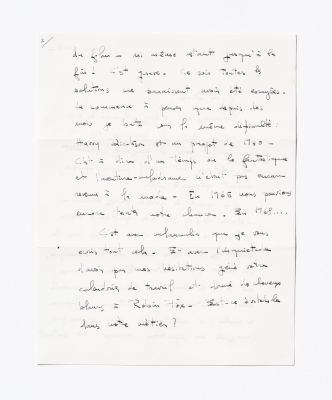 2/
du film – ni même étant jusqu'à la
fin ! C'est grave. Ce soir toutes les
solutions me paraissent avoir été essayées.
Je commence à penser que depuis des
mois je bute sur la même difficulté :
Harry Dickson est un projet de 1960 –
c'est à dire d'un temps où le fantastique
et l'aventure-mélodrame n'était pas encore
revenu à la mode – En 1965 nous pouvions
encore tenter notre chance. En 1969....
C'est avec mélancolie que je vous
écris tout cela. Et avec l'inquiétude
d'avoir par mes hésitations gêné votre
calendrier de travail et donné des cheveux
blancs à Robin Fox. Est-ce
dans notre métier ?